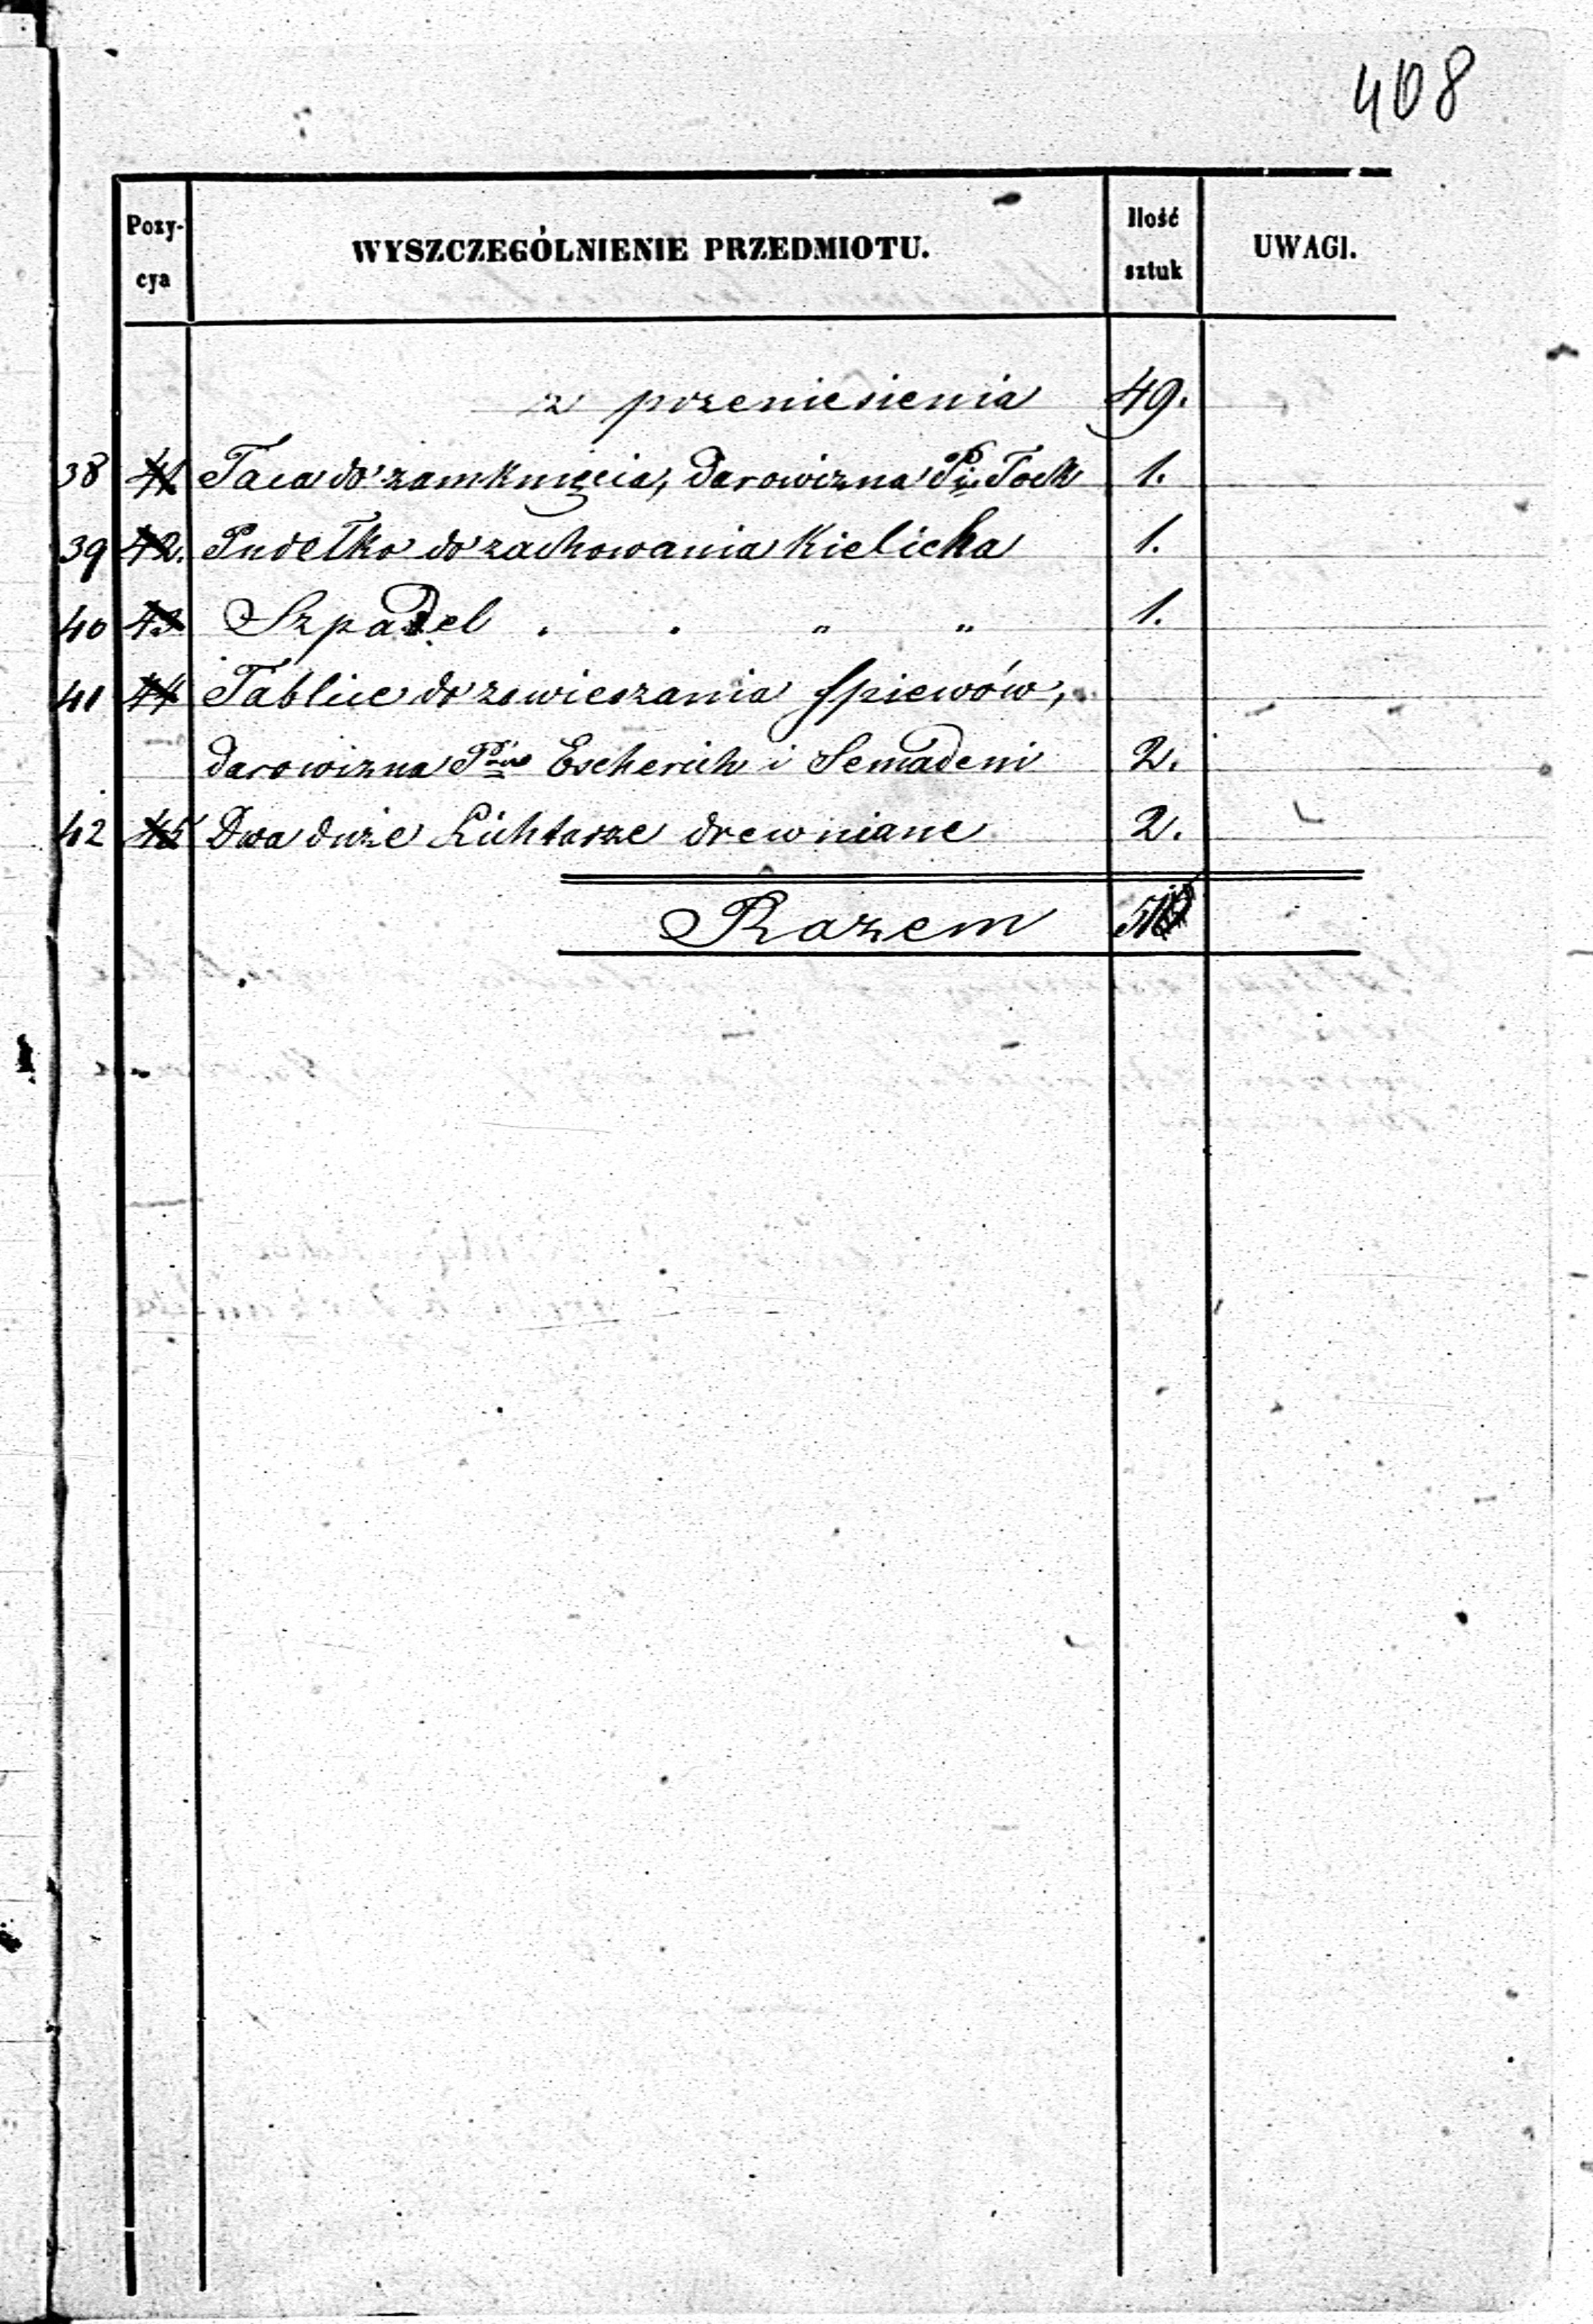 408
Pozy-
cya
WYSZCZEGÓLNIENIE PRZEDMIOTU.
Ilość
sztuk
UWAGI.
z przeniesienia 49.
38 41 Taca do zamknięcia, darowizna Tock 1.
39 42. Pudełko do zachowania Kielicha 1.
40 43 Szpadel . . " " 1.
41 44 Tablice do zawieszania Spiewów,
darowizna Pów Escherich i Semadeni 2.
42 45 Dwa duże Lichtarze drewniane 2.
Razem